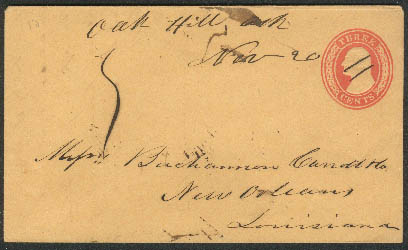 Oak Hill Ark
Nov 20
THREE
CENTS
5
Messrs Buchannon Carroll & Co
New Orleans
Louisiana